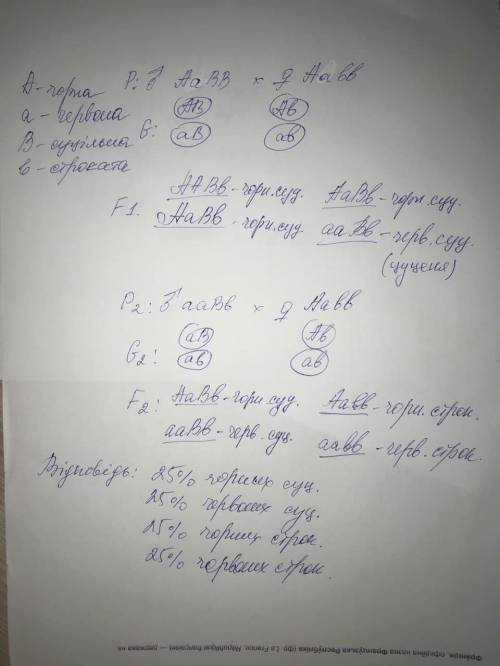 А - чорна
а - червона
В - суцільна
в - строката
Р: ♂ АаВВ × ♀ Аавв
G: АВ Ав
аВ ав
F1. ААВв - чорн. суц. АаВв - чорн. суц.
АаВв - чорн. суц. ааВв - черв. суц.
(цуценя)
Р2: ♂ ааВв × ♀ Аавв
G2: аВ Ав
ав ав
F2: АаВв - чорн. суц. Аавв - чорн. строк.
ааВв - черв. суц. аавв - черв. строк.
Відповідь: 25% чорних суц.
25% червоних суц.
25% чорних строк.
25% червоних строк.
Франція, офіційна назва Французька Республіка (фр. La France, République française) — держава на